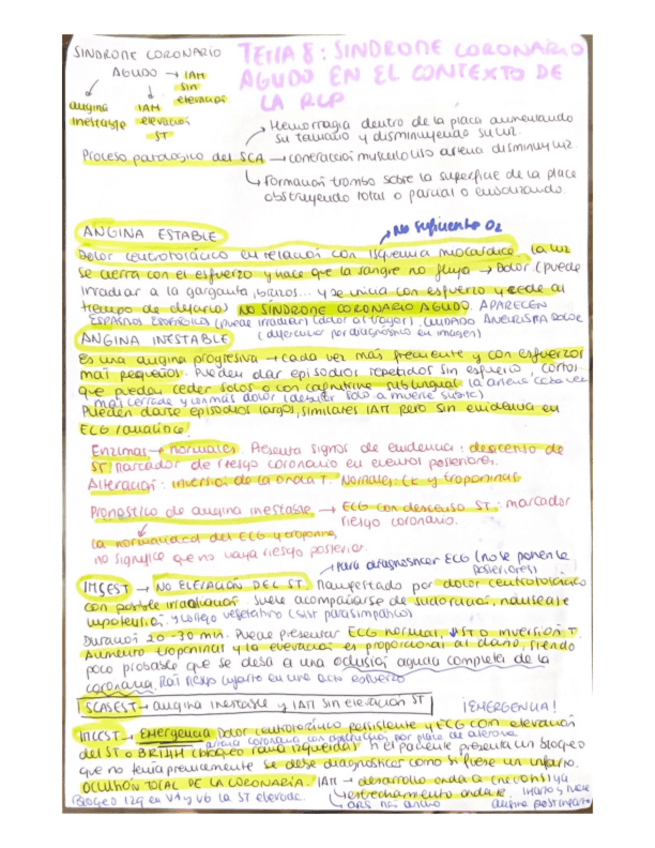 SINDROME CORONARIO
AGUDO → IAM
sin
elevación
angina
inestable
IAM
elevación
ST
TEMA 8: SINDROME CORONARIO
AGUDO EN EL CONTEXTO DE
LA RCP
Hemorragia dentro de la placa aumentando
su tamaño y disminuyendo su luz.
Proceso patologico del SCA → contracción musculo liso arteria disminuy luz.
Formación trombo sobre la superficie de la placa
obstruyendo total o parcial o embolizando.
ANGINA ESTABLE
No suficiente O2
Dolor centrotorácico en relación con isquemia miocardica. La luz
se cierra con el esfuerzo y hace que la sangre no fluya → Dolor (puede
irradiar a la garganta, brazos... y se inicia con esfuerzo y cede al
tiempo de dejarlo) NO SÍNDROME CORONARIO AGUDO. APARECEN
ESPASMOS ESOFÁGICOS (puede irradiar) (dolor al tragar). CUIDADO ANEURISMA DOLOR
(diferenciar por diagnóstico en imagen)
ANGINA INESTABLE
Es una angina progresiva → cada vez más frecuente y con esfuerzos
más pequeños. Pueden dar episodios repetidos sin esfuerzo, cortos
que puedan ceder solos o con cafinitrina sublingual la arteria cada vez
más cerrada y con más dolor
Pueden darse episodios largos, similares IAM pero sin evidencia en
ECG / analítica.
Enzimas → normales. Presenta signos de evidencia: descenso de
ST marcador de riesgo coronario en eventos posteriores.
Alteración: inversión de la onda T. Normales: CK y troponinas
Pronostico de angina inestable → ECG con descenso ST: marcador
riesgo coronario.
La normalidad del ECG y troponina
no significa que no haya riesgo posterior.
Para diagnosticar ECG (no se ponen la
posteriores)
IMSEST → NO ELEVACIÓN DEL ST. Manifestado por dolor centrotorácico
con posible irradiación. Suele acompañarse de sudoración, náuseas e
hipotensión. y cortejo vegetativo (sist parasimpático)
Duración 20-30 min. Puede presentar ECG normal, ↓ST o inversión T.
Aumento troponinas y la elevación es proporcional al daño, siendo
poco probable que se deba a una oclusión aguda completa de la
coronaria.
SCASEST → angina inestable y IAM sin elevación ST
¡EMERGENCIA!
IMCEST → Emergencia Dolor centrotorácico persistente y ECG con elevación
arteria coronaria con obstrucción por placa de ateroma
del ST o BRIHH (bloqeo rama izquierda) si el paciente presenta un bloqeo
que no tenía previamente se debe diagnosticar como si fuese un infarto.
OCLUSIÓN TOTAL DE LA CORONARIA. IAM → desarrollo onda Q
Bloqeo izq en V1 y V6 la ST elevada.
angina postinfarto